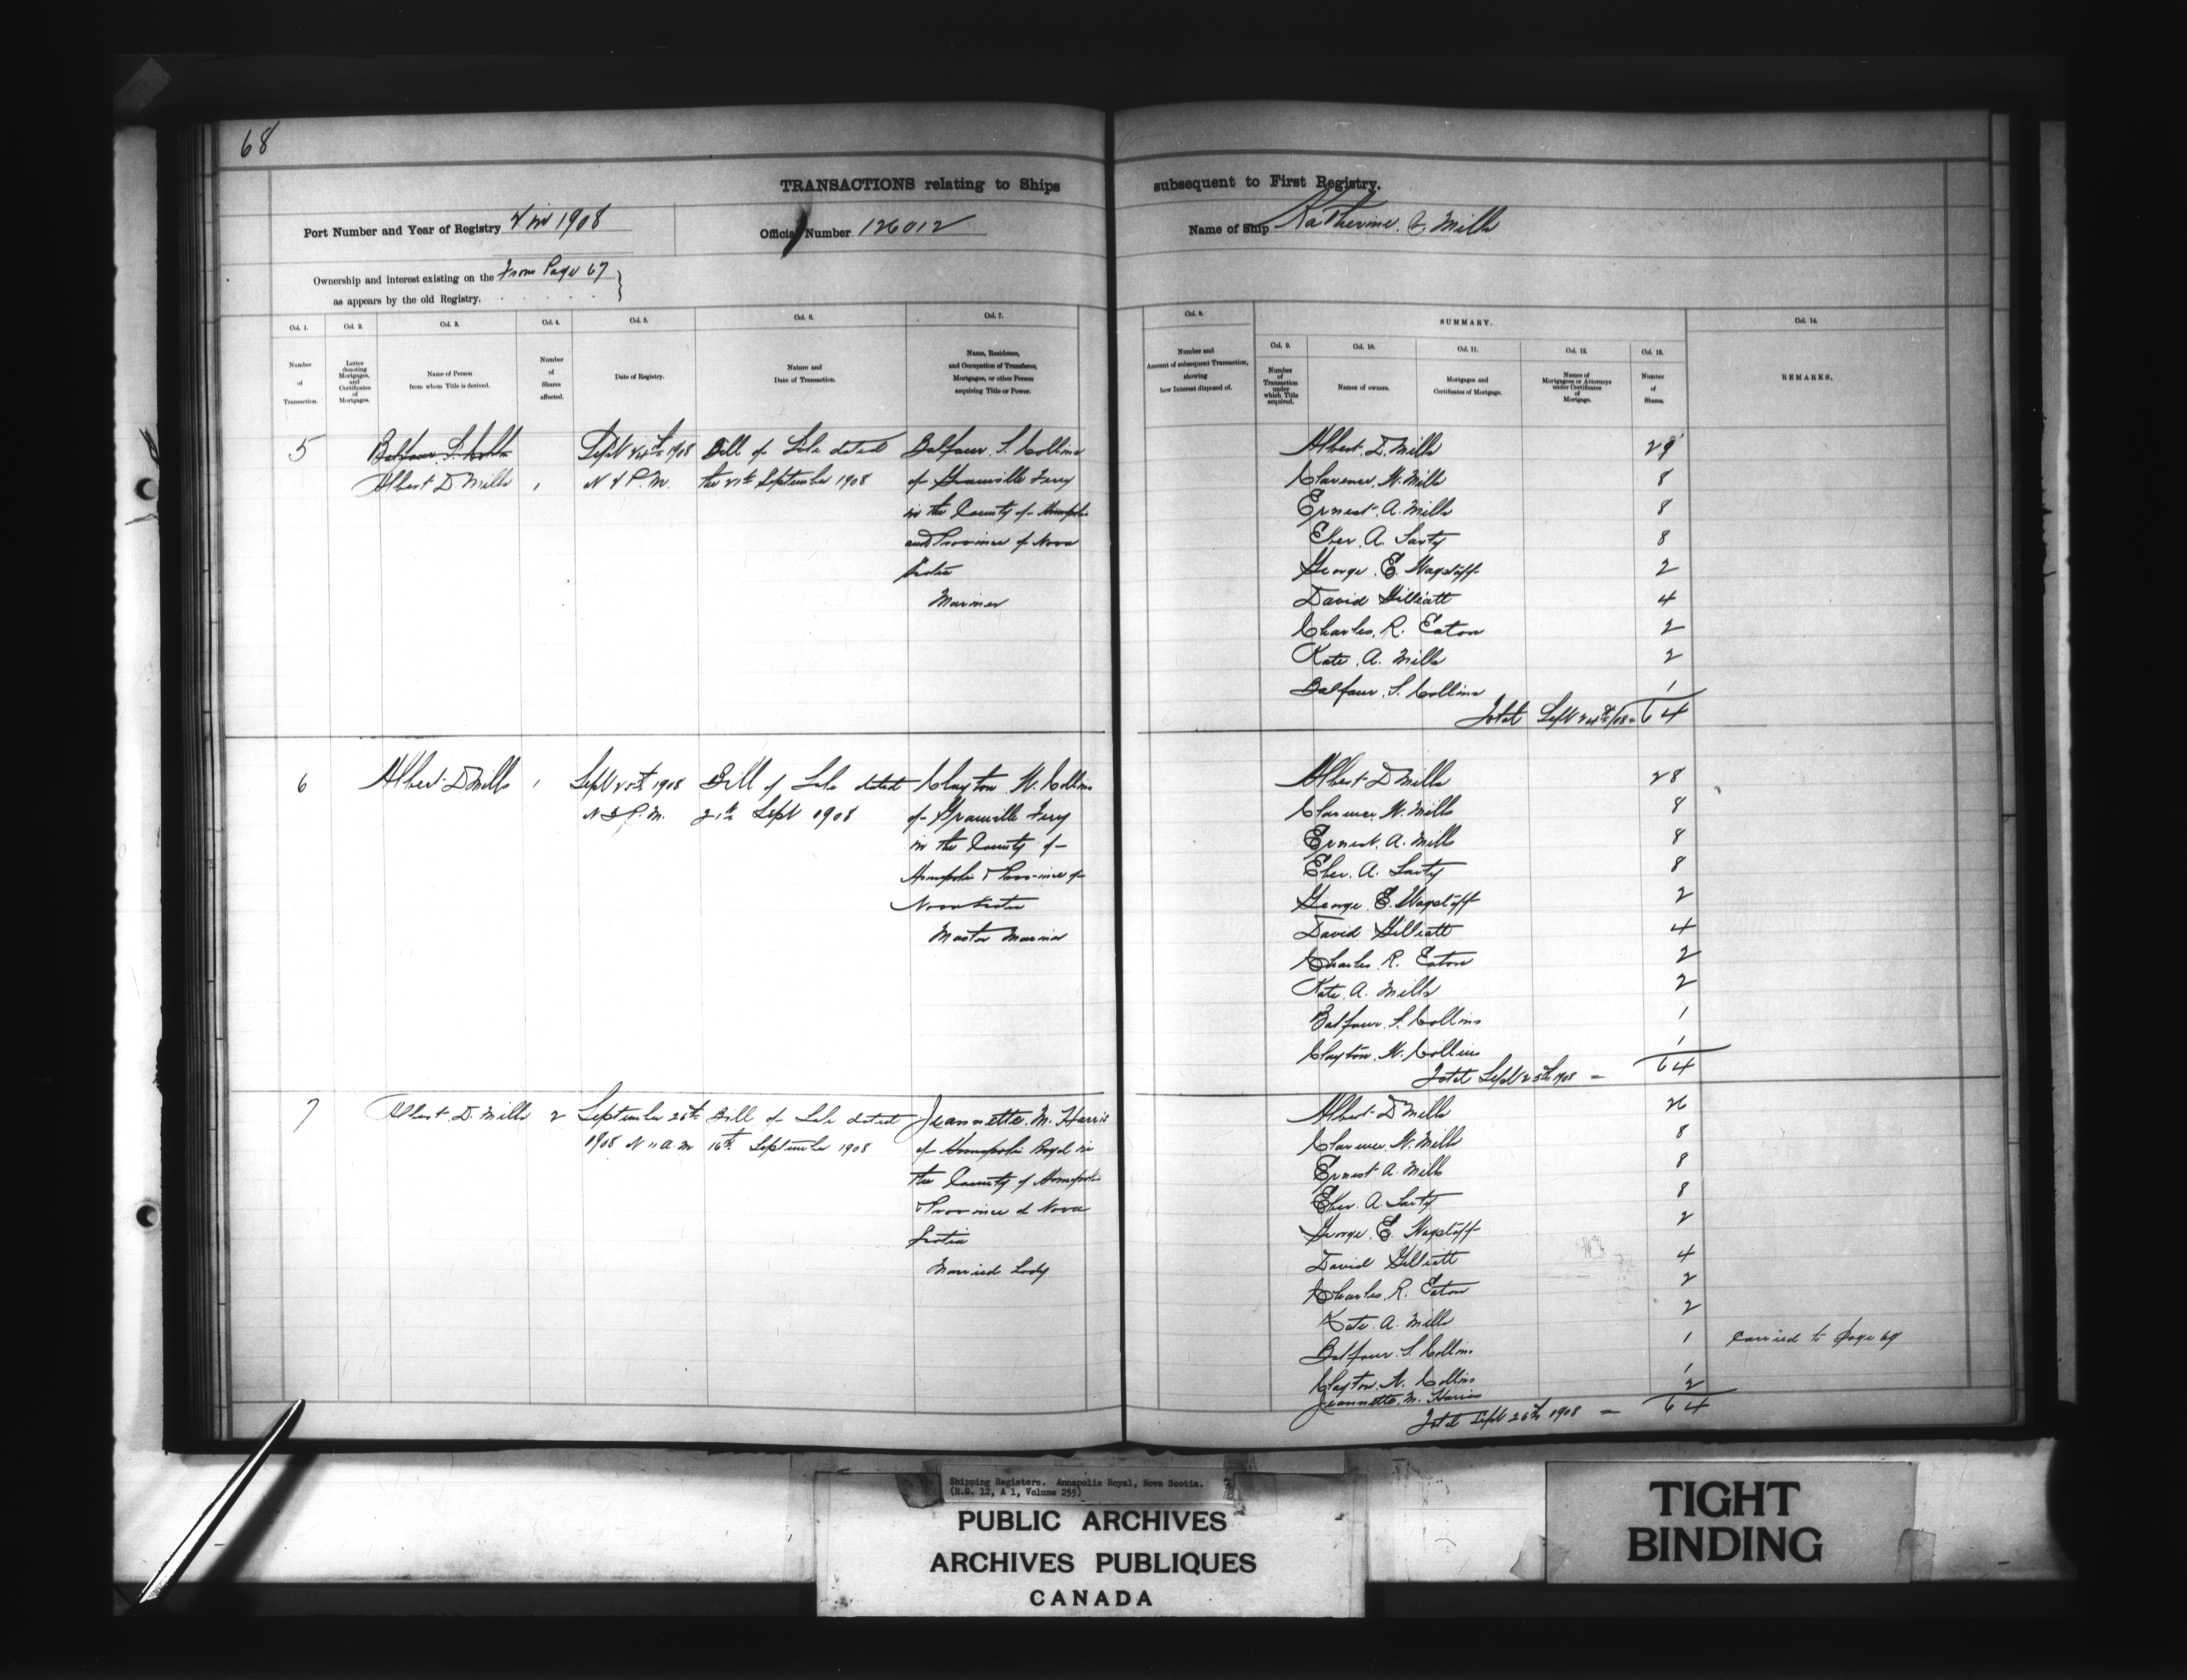 68
TRANSACTIONS relating to Ships subsequent to First Registry.
Port Number and Year of Registry 4 in 1908
Official Number 126012
Name of Ship Katherine. Mills
Ownership and interest existing on the From Page 67
as appears by the old Registry.
Col. 1. Col. 2. Col. 3. Col. 4. Col. 5. Col. 6. Col. 7. Col. 8. SUMMARY. Col. 14.
Col. 9. Col. 10. Col. 11. Col. 12. Col. 13.
Number of Transaction.
Letter denoting Mortgages, and Certificates of Mortgages.
Name of Person from whom Title is derived.
Number of Shares affected.
Date of Registry.
Nature and Date of Transaction.
Name, Residence, and Occupation of Transferee, Mortgagee, or other Person acquiring Title or Power.
Number and Amount of subsequent Transaction, showing how Interest disposed of.
Number of Transaction under which Title acquired.
Names of owners.
Mortgages and Certificates of Mortgage.
Names of Mortgagees or Attorneys under Certificates of Mortgage.
Number of Shares.
REMARKS.
5 Sept 24th 1908 Bill of Sale dated Balfour. S. Collins
Albert D Mills 1 P.M. the 21st September 1908 of Granville Ferry
in the County of Annapolis
and Province of Nova
Scotia
Mariner
Albert. D. Mills 29
Clarence. W. Mills 8
Ernest. A. Mills 8
Eber. A. Sarty 8
George. E. Wagstaff 2
David Gilliatt 4
Charles. R. Eaton 2
Kate. A. Mills 2
Balfour. S. Collins 1
Total Sept 24th/08 = 64
6 Albert D Mills 1 Sept 25th 1908 Bill of Sale dated Clayton W. Collins
P.M. 21st Sept 1908 of Granville Ferry
in the County of
Annapolis & Province of
Nova Scotia
Master Mariner
Albert D Mills 28
Clarence. W. Mills 8
Ernest. A. Mills 8
Eber. A. Sarty 8
George E. Wagstaff 2
David Gilliatt 4
Charles. R. Eaton 2
Kate. A. Mills 2
Balfour. S. Collins 1
Clayton. W. Collins 1
Total Sept 25th 1908 = 64
7 Albert D. Mills 2 September 26th Bill of Sale dated Jeannette. M. Harris
1908 11 a.m 16th September 1908 of Annapolis Royal in
the County of Annapolis
& Province of Nova
Scotia
Married Lady
Albert D Mills 26
Clarence W. Mills 8
Ernest A. Mills 8
Eber. A. Sarty 8
George E. Wagstaff 2
David Gilliatt 4
Charles. R. Eaton 2
Kate. A. Mills 2
Balfour. S. Collins 1 carried to page 69
Clayton. W. Collins 1
Jeannette. M. Harris 2
Total Sept 26th 1908 = 64
Shipping Registers. Annapolis Royal, Nova Scotia.
(R.G. 12, A 1, Volume 255)
PUBLIC ARCHIVES
ARCHIVES PUBLIQUES
CANADA
TIGHT
BINDING